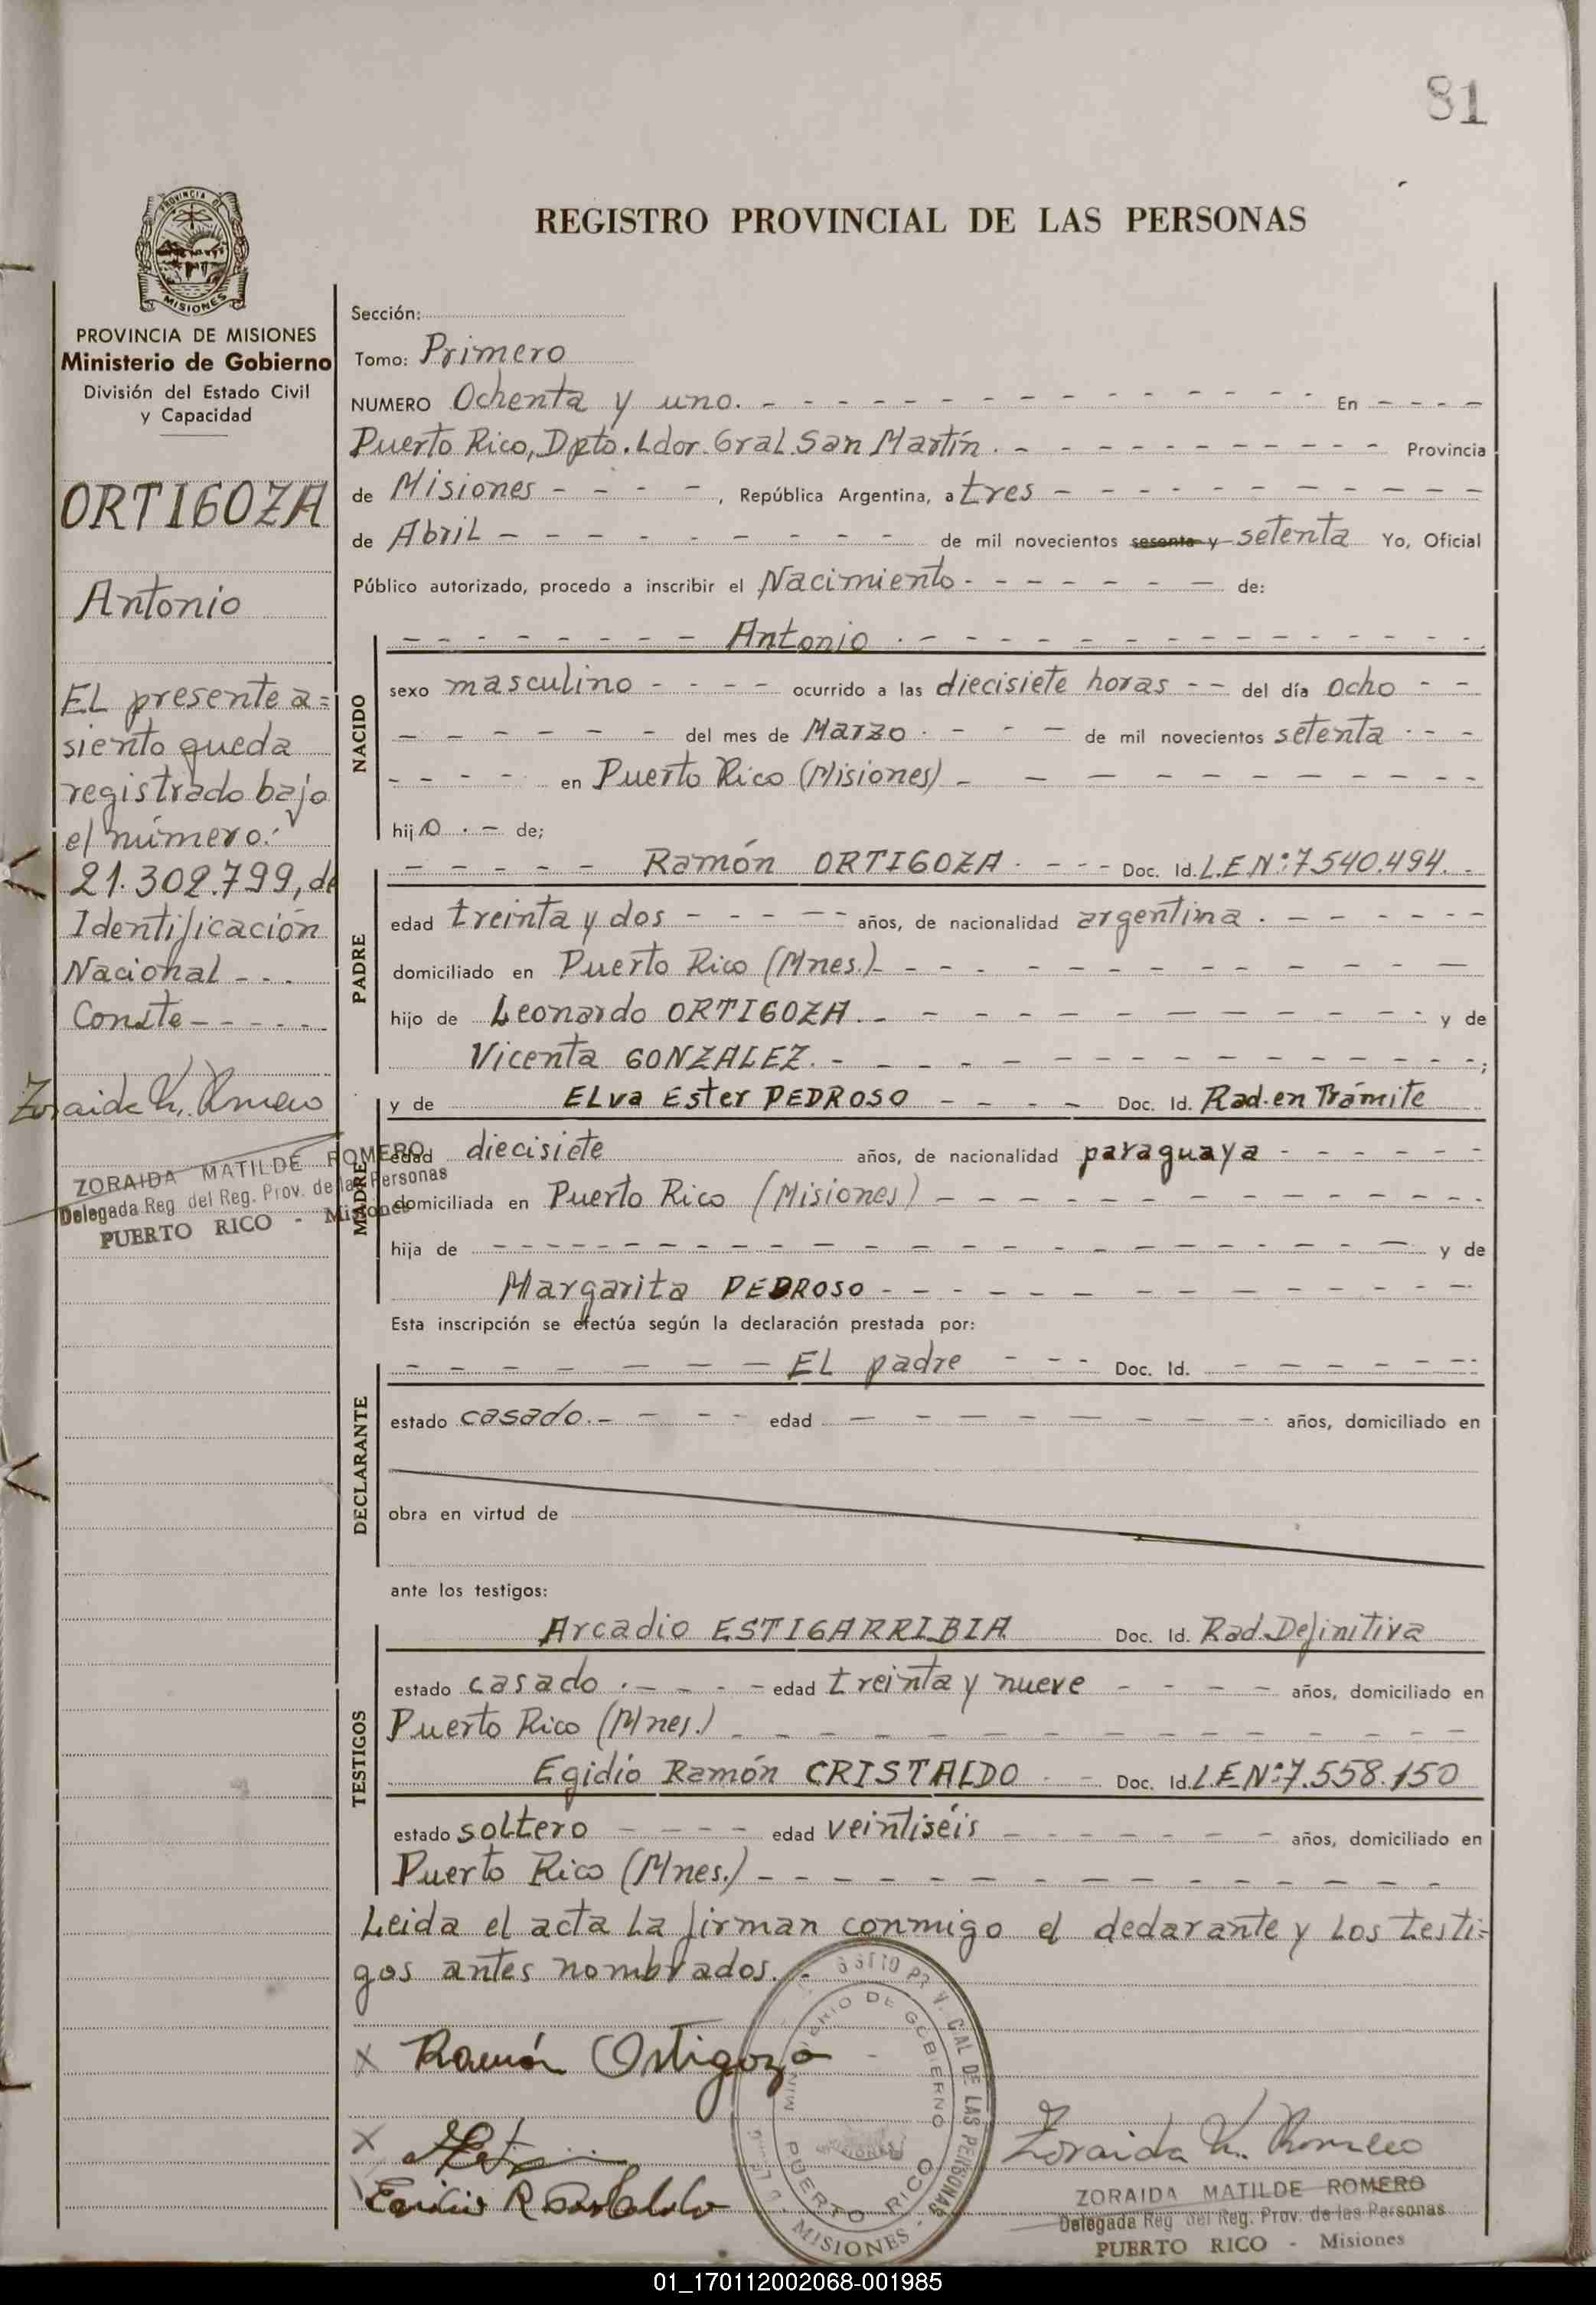 81
REGISTRO PROVINCIAL DE LAS PERSONAS
PROVINCIA DE
MISIONES
PROVINCIA DE MISIONES
Ministerio de Gobierno
División del Estado Civil
y Capacidad
ORTIGOZA
Antonio
EL presente a=
siento queda
registrado bajo
el número:
21.302.799, de
Identificación
Nacional - - .
Conste - - - - -
Zoraida M. Romero
ZORAIDA MATILDE ROMERO
Delegada Reg. del Reg. Prov. de las Personas
PUERTO RICO - Misiones
Sección:
Tomo: Primero
NUMERO Ochenta y uno. - - - En - - - -
Puerto Rico, Dpto. Ldor. Gral. San Martín. - - - Provincia
de Misiones - - - -, República Argentina, a tres - - -
de Abril - - - de mil novecientos sesenta y setenta Yo, Oficial
Público autorizado, procedo a inscribir el Nacimiento - - - de:
NACIDO
- - - Antonio. - - -
sexo masculino - - - - ocurrido a las diecisiete horas - - del día ocho - -
- - - del mes de Marzo. - - - de mil novecientos setenta - - -
- - - - en Puerto Rico (Misiones) - - -
hijo. - de;
PADRE
- - - - - Ramón ORTIGOZA. - - - Doc. Id. L.E.Nº:7.540.494. -
edad treinta y dos - - - - - años, de nacionalidad argentina. - - -
domiciliado en Puerto Rico (Mnes.) - - -
hijo de Leonardo ORTIGOZA. - - - y de
Vicenta GONZALEZ. - - - ;
MADRE
y de ELva Ester PEDROSO - - - - Doc. Id. Rad. en Trámite
edad diecisiete años, de nacionalidad paraguaya - - -
domiciliada en Puerto Rico (Misiones) - - -
hija de - - - y de
Margarita PEDROSO - - -
Esta inscripción se efectúa según la declaración prestada por:
DECLARANTE
- - - EL padre - - - Doc. Id. - - -
estado casado. - - - - edad - - - años, domiciliado en
obra en virtud de
ante los testigos:
TESTIGOS
Arcadio ESTIGARRIBIA Doc. Id. Rad. Definitiva
estado casado. - - - - edad treinta y nueve - - - - años, domiciliado en
Puerto Rico (Mnes.) - - -
Egidio Ramón CRISTALDO - - Doc. Id. L.E.Nº:7.558.150
estado soltero - - - - edad veintiséis - - - años, domiciliado en
Puerto Rico (Mnes.) - - -
Leida el acta La firman conmigo el declarante y Los testi=
gos antes nombrados. -
x Ramón Ortigoza
x
Zoraida M. Romero
MINISTERIO DE GOBIERNO
PUERTO RICO
MISIONES
ZORAIDA MATILDE ROMERO
Delegada Reg. del Reg. Prov. de las Personas
PUERTO RICO - Misiones
01_170112002068-001985